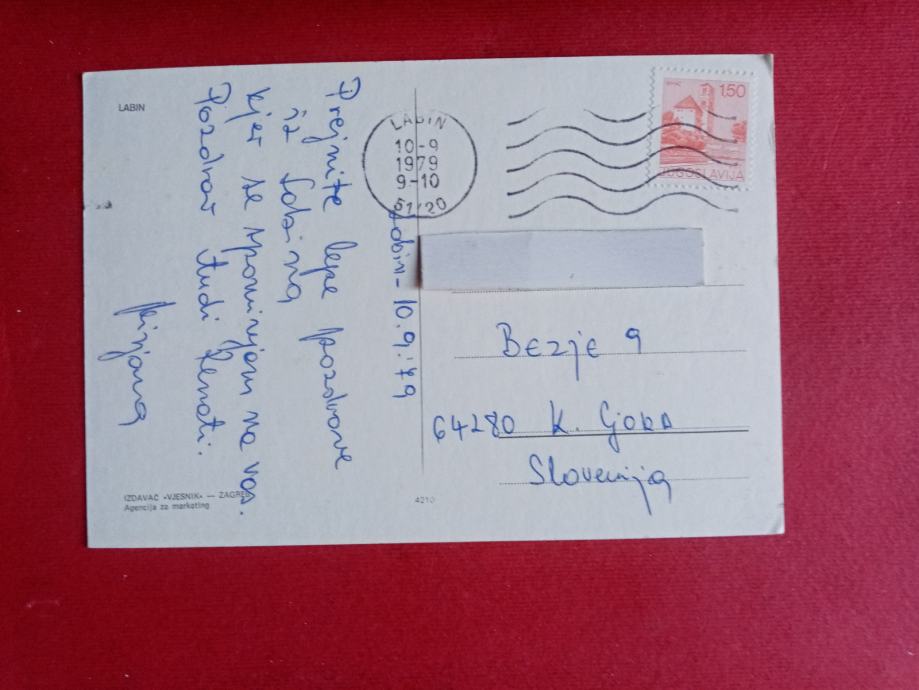 LABIN
Labin - 10. 9. '79
Prejmite lepe pozdrave
iz Labina
kjer se spominjam na vas.
Pozdrav tudi Renati.
Mirjana
IZDAVAČ »VJESNIK« — ZAGREB
Agencija za marketing
4210
LABIN
10-9
1979
9-10
51420
1.50
JUGOSLAVIJA
Bezje 9
64280 K. Gora
Slovenija